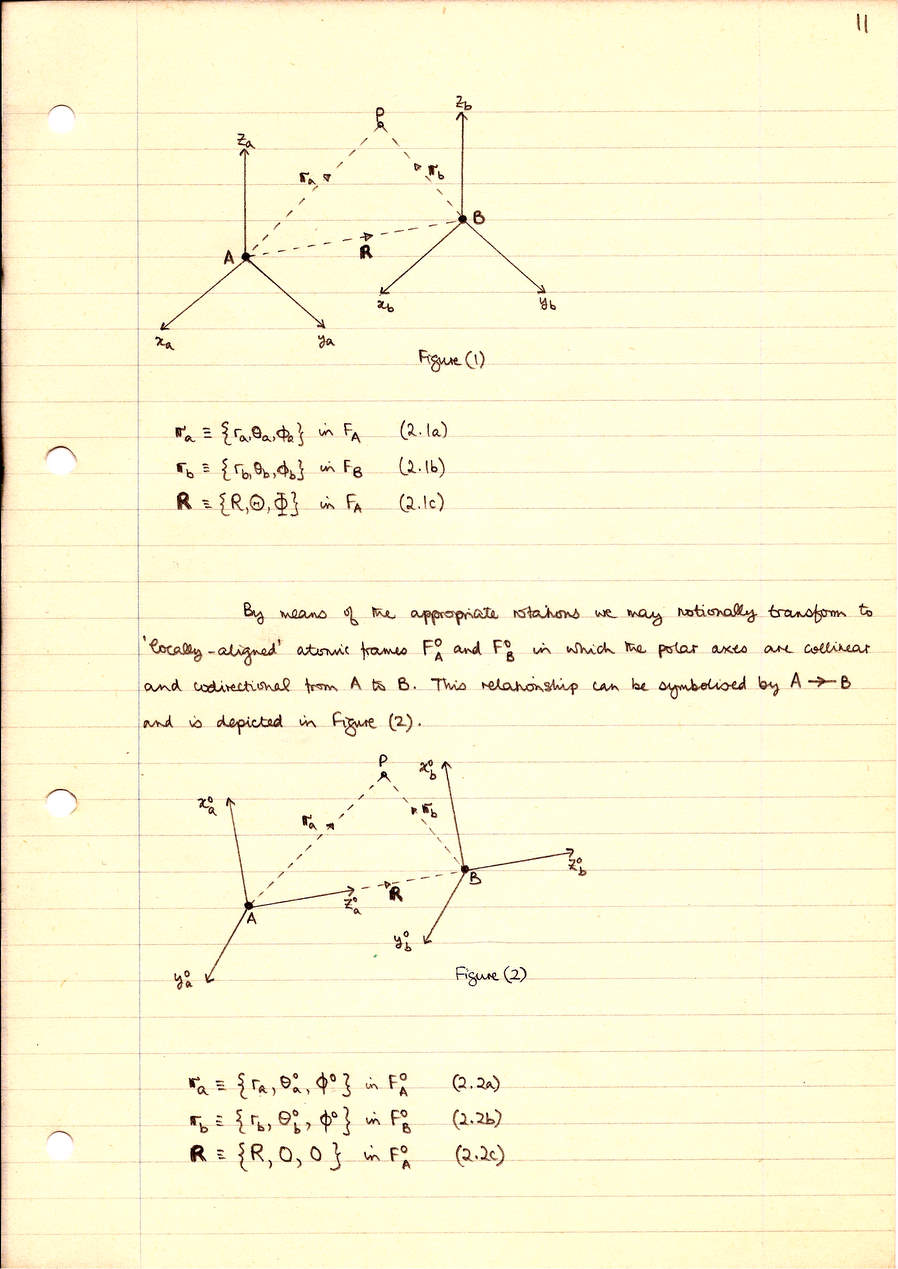 11
P
z_b
z_a
𝐫_a
𝐫_b
B
A
𝐑
x_b
y_b
x_a
y_a
Figure (1)
𝐫_a ≡ {r_a, θ_a, ϕ_a} in F_A (2.1a)
𝐫_b ≡ {r_b, θ_b, ϕ_b} in F_B (2.1b)
𝐑 ≡ {R, Θ, Φ} in F_A (2.1c)
By means of the appropriate rotations we may notionally transform to
'locally-aligned' atomic frames F_A^o and F_B^o in which the polar axes are collinear
and codirectional from A to B. This relationship can be symbolised by A ->- B
and is depicted in Figure (2).
P
x_b^o
x_a^o
𝐫_a
𝐫_b
B
z_b^o
𝐑
z_a^o
A
y_b^o
y_a^o
Figure (2)
𝐫_a ≡ {r_a, θ_a^o, ϕ^o} in F_A^o (2.2a)
𝐫_b ≡ {r_b, θ_b^o, ϕ^o} in F_B^o (2.2b)
𝐑 ≡ {R, 0, 0} in F_A^o (2.2c)